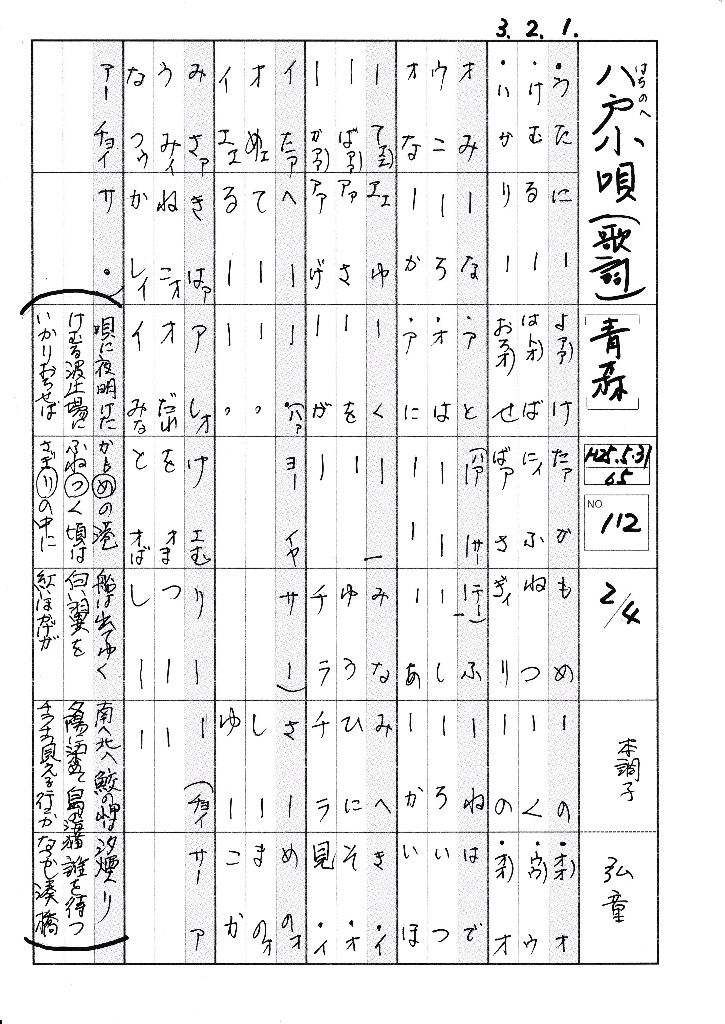 3. 2. 1.
はちのへ
八戸小唄(歌詞)
青森
H25.5.31
65
NO
112
2/4
本調子
弘童
・うたにーよ(アァ)けたァかもめーの・(オォ)オ
・けむるーは(トォ)ばにィふねつーく・(ウゥ)ウ
・いかりーおろ(オ)せばァさぎィりーの・(オォ)オ
オみーな・アとー(ハァサーテー)ふーねはで
ウこーろ・オはーーーしーろいつ
オなーか・アにーーーあーかいほ
ーて(エェ)エェゆーくーーみなみへき・イ
ーば(アァ)アァさーをーーゆうひにそ・オ
ーが(アァ)アァげーがーーチラチラ見・イ
イたァへーー・(ハァヨーイヤサー)さーめのオ
オめェてーー。しーまのオ
イエエるーー。ゆーこか
みさァきはァアしオけエむりーー(チョイサーア
うみィねこォオだれをオまつーー
なつゥかしィイみなとオばしーー
アーチョイサ・)
唄に夜明けた かもめの港 船は出てゆく 南へ北へ 鮫の岬は汐煙り
けむる波止場に ふねつく頃は 白い翼を 夕陽に染めて 島の海猫 誰を待つ
いかりおろせば さぎりの中に 紅いほかげが チラチラ見える 行こかなつかし湊橋